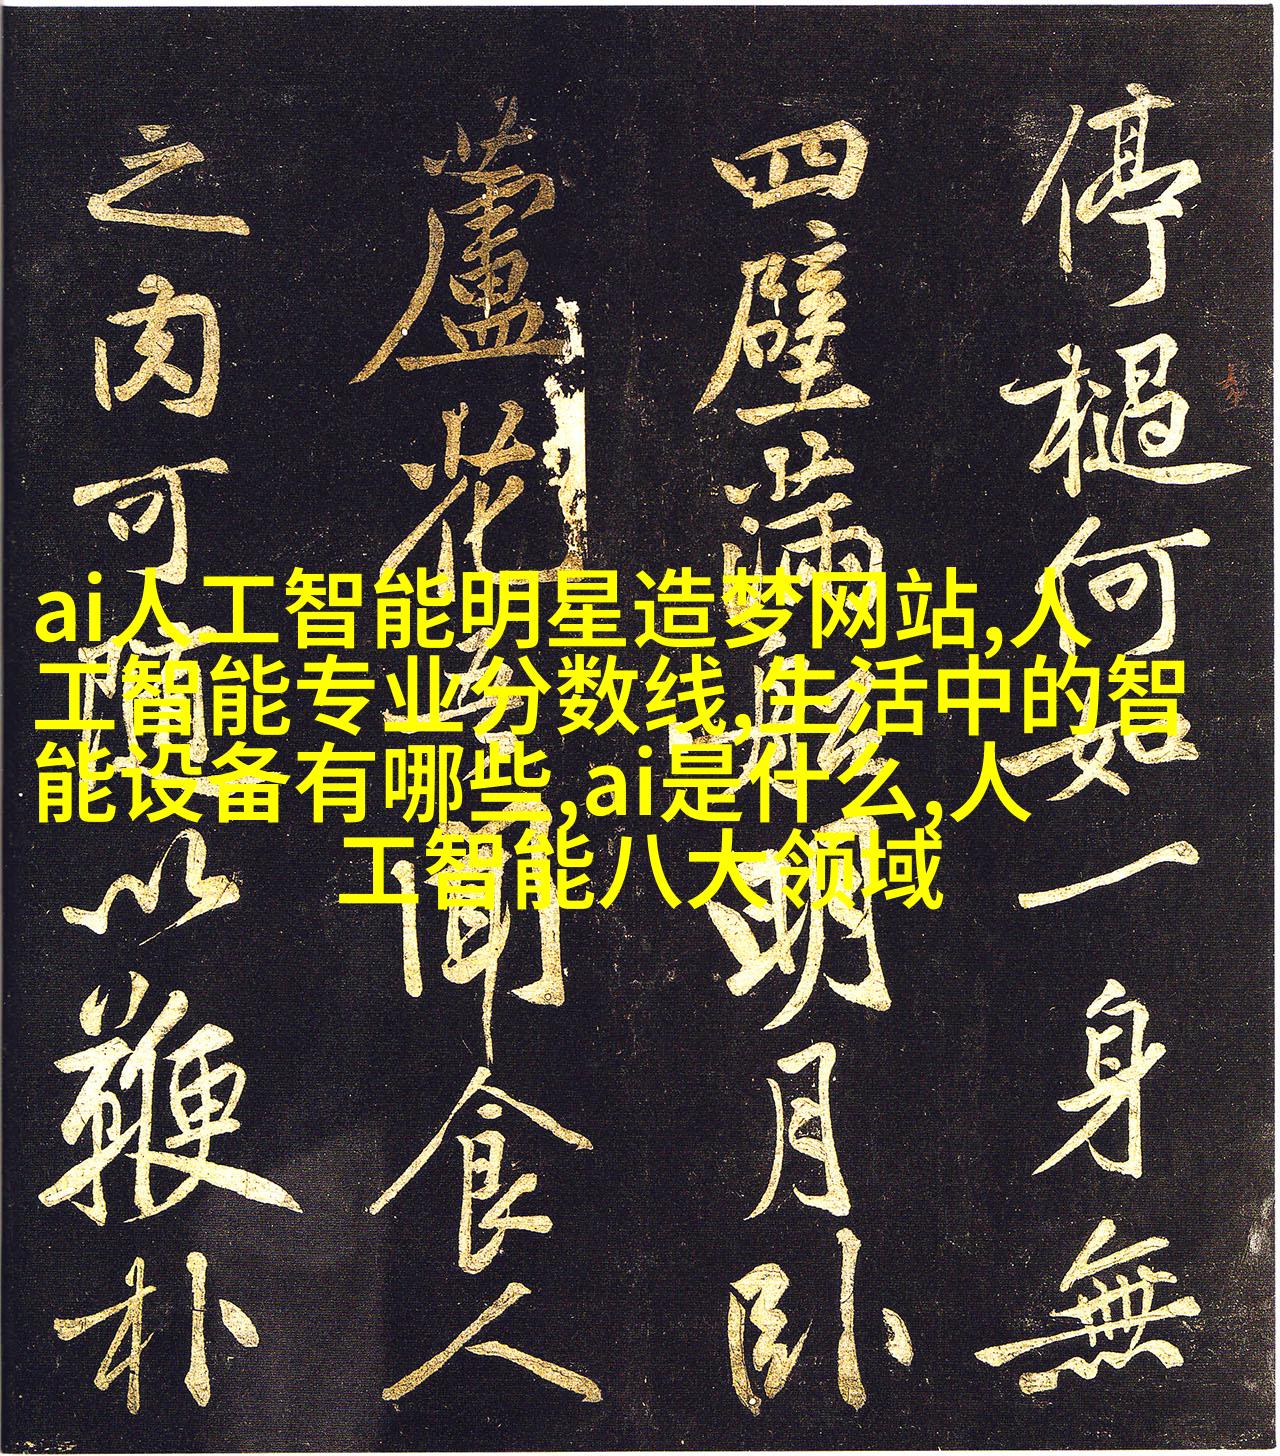 ai人工智能明星造梦网站,人
工智能专业分数线,生活中的智
能设备有哪些,ai是什么,人
工智能八大领域
停檛何如一身無
四壁滿船明月卧
蘆花吾聞食人
之肉可隨以鞭朴